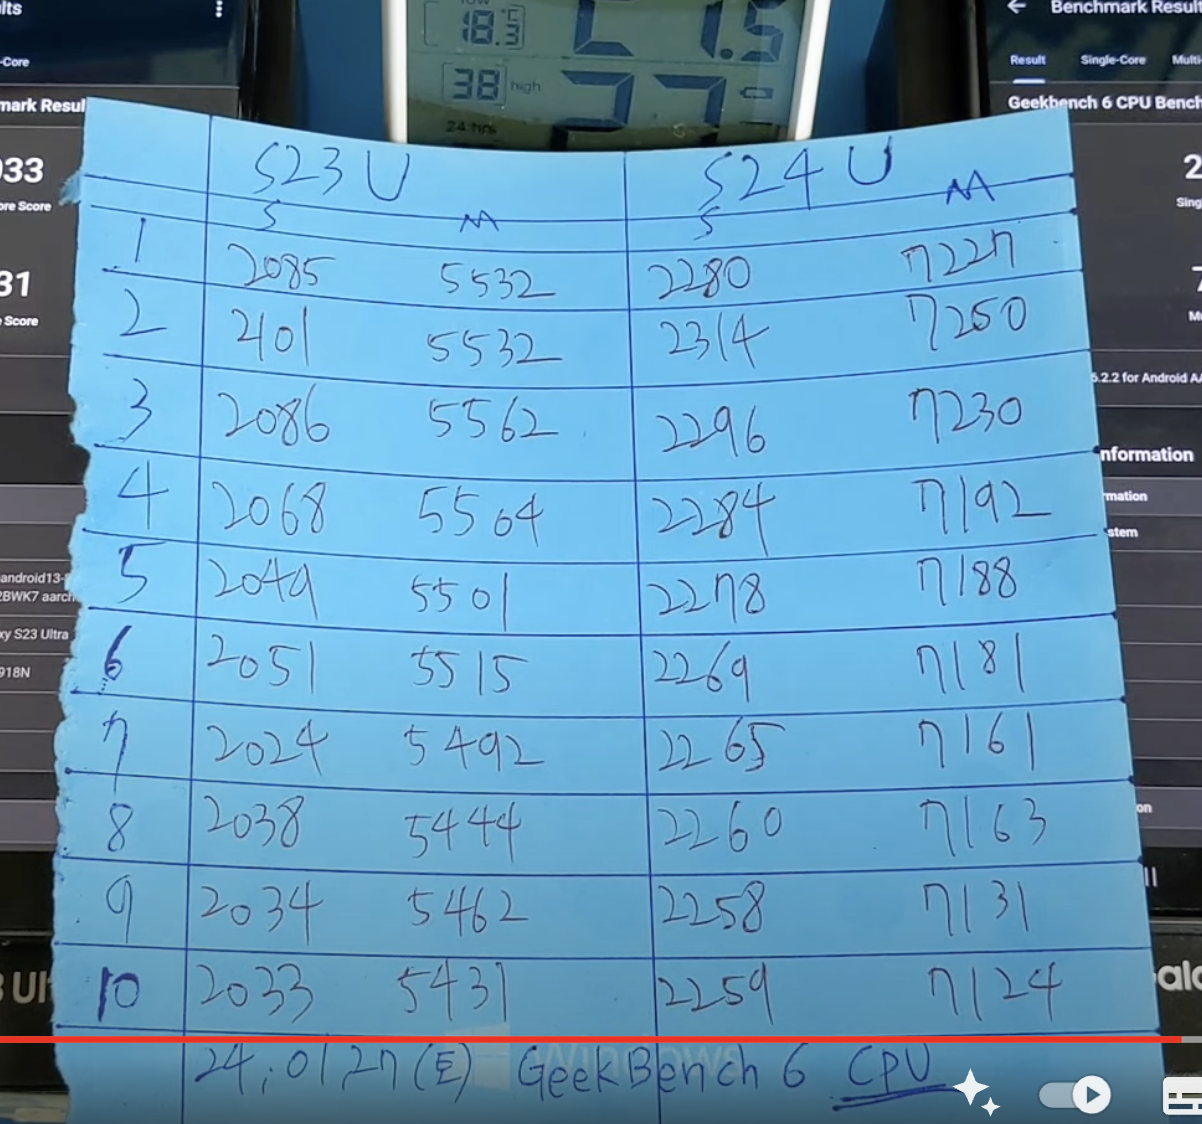 lts
-Core
mark Resul
033
ore Score
31
Score
low
18.3 °C
38 high
24 hrs
Benchmark Result
Result Single-Core Multi-
Geekbench 6 CPU Bench
2
Sing
7
Mu
6.2.2 for Android AA
nformation
rmation
stem
on
android13-
2BWK7 aarch
xy S23 Ultra
918N
S23 U S24 U
S M S M
1 2085 5532 2280 7227
2 2101 5532 2314 7250
3 2086 5562 2296 7230
4 2068 5504 2284 7192
5 2049 5501 2278 7188
6 2051 5515 2269 7181
7 2024 5492 2265 7161
8 2038 5444 2260 7163
9 2034 5462 2258 7131
10 2033 5431 2259 7124
24.01.27(토) GeekBench 6 CPU
Windows